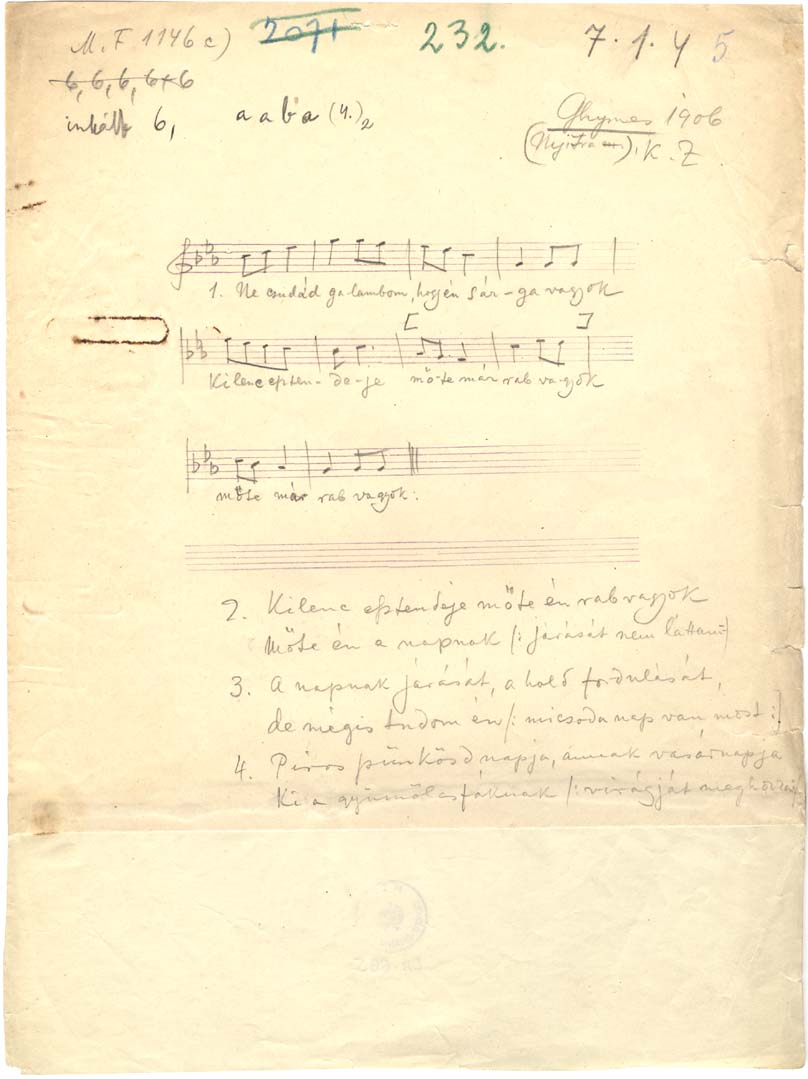 M. F 1146 c) 2071 232. 7. 1. 4 5
6, 6, 6, 6+6
inkább 6, a a b a (4.)2
Ghymes 1906
(Nyitra m.), K. Z.
1. Ne csudád ga-lambom, hogyén sár-ga vagyok
[ ]
Kilenc eszten-de-je mő-te már rab va-gyok
mőte már rab vagyok:
2. Kilenc esztendeje mőte én rab vagyok
Mőte én a napnak /: járását nem láttam :/
3. A napnak járását, a hold fordulását,
de mégis tudom én /: micsoda nap van most :/
4. Piros pünkösd napja, annak vasárnapja
Ki a gyümölcsfáknak /: virágját meghozza :/